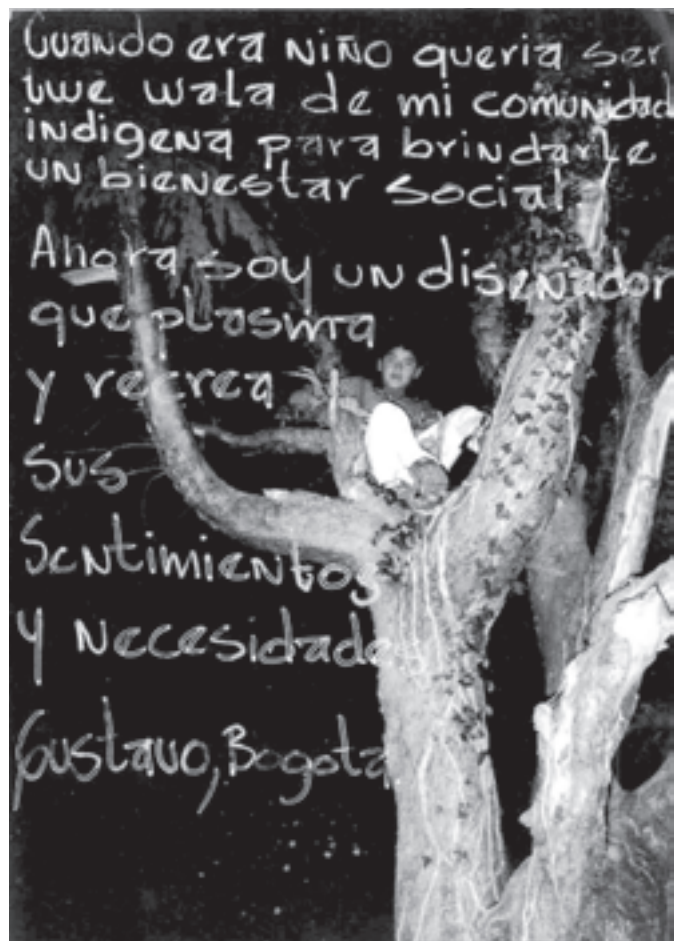 Cuando era niño queria ser
twe wala de mi comunidad
indigena para brindarle
un bienestar social.
Ahora soy un diseñador
que plasma
y recrea
sus
sentimientos
y necesidades
Gustavo, Bogota